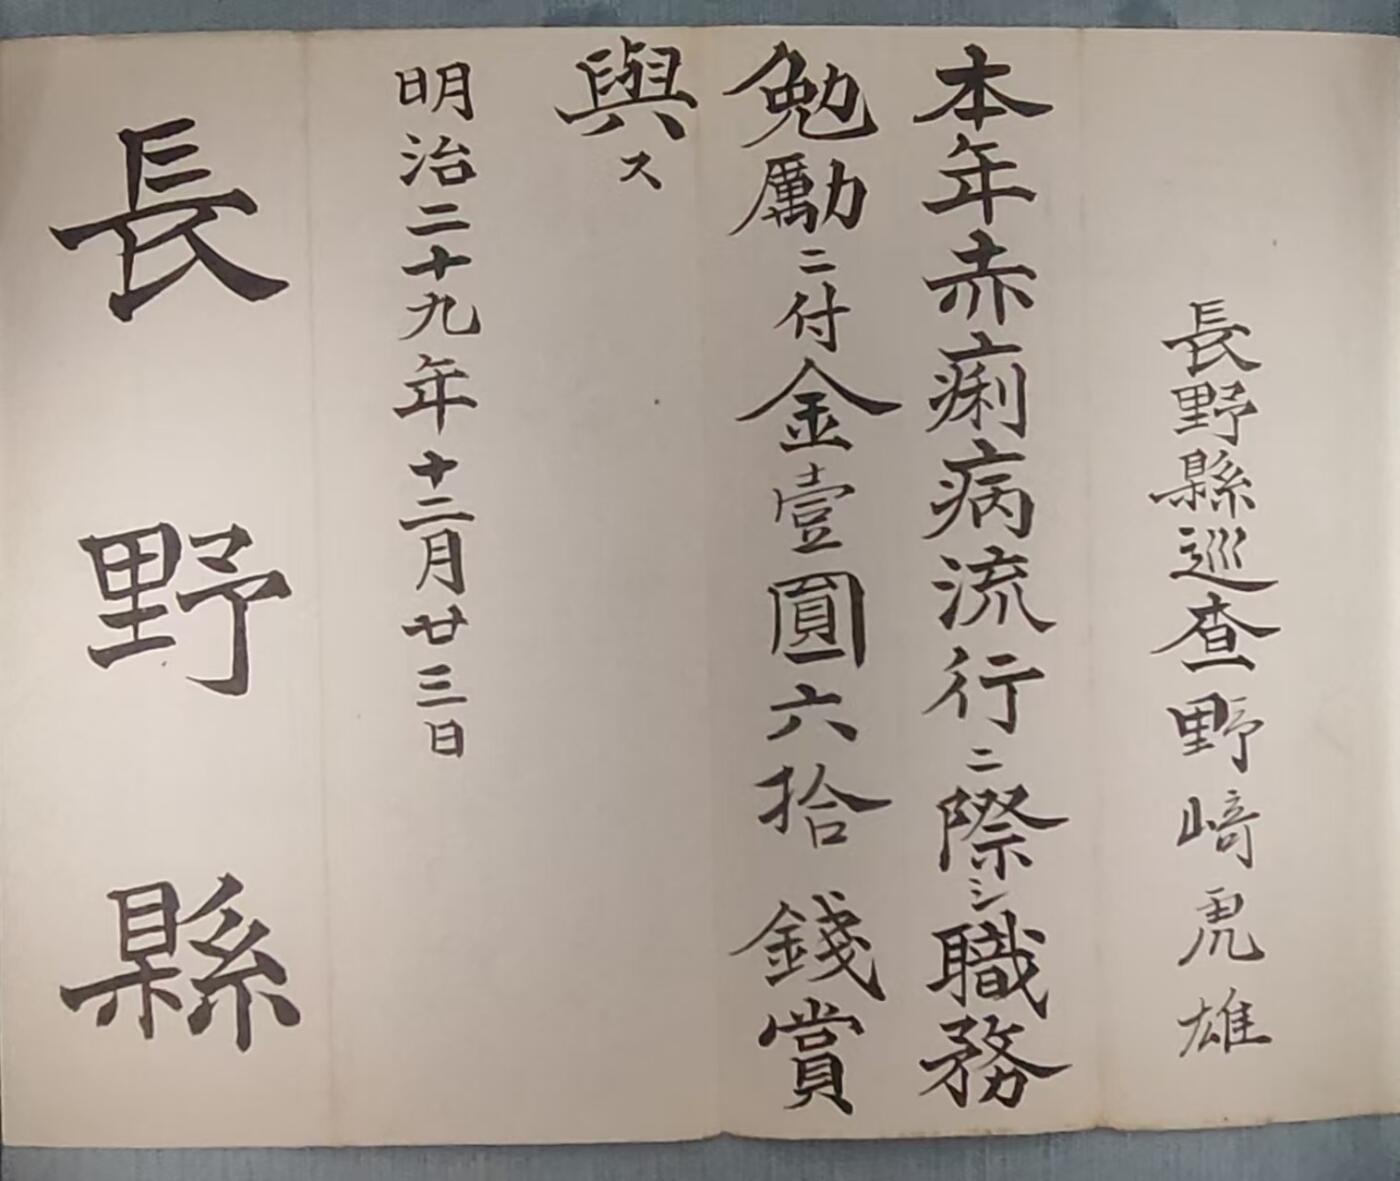 長野縣巡査野﨑虎雄
本年赤痢病流行ニ際シ職務
勉勵ニ付金壹圓六拾錢賞
與ス
明治二十九年十二月廿三日
長野縣